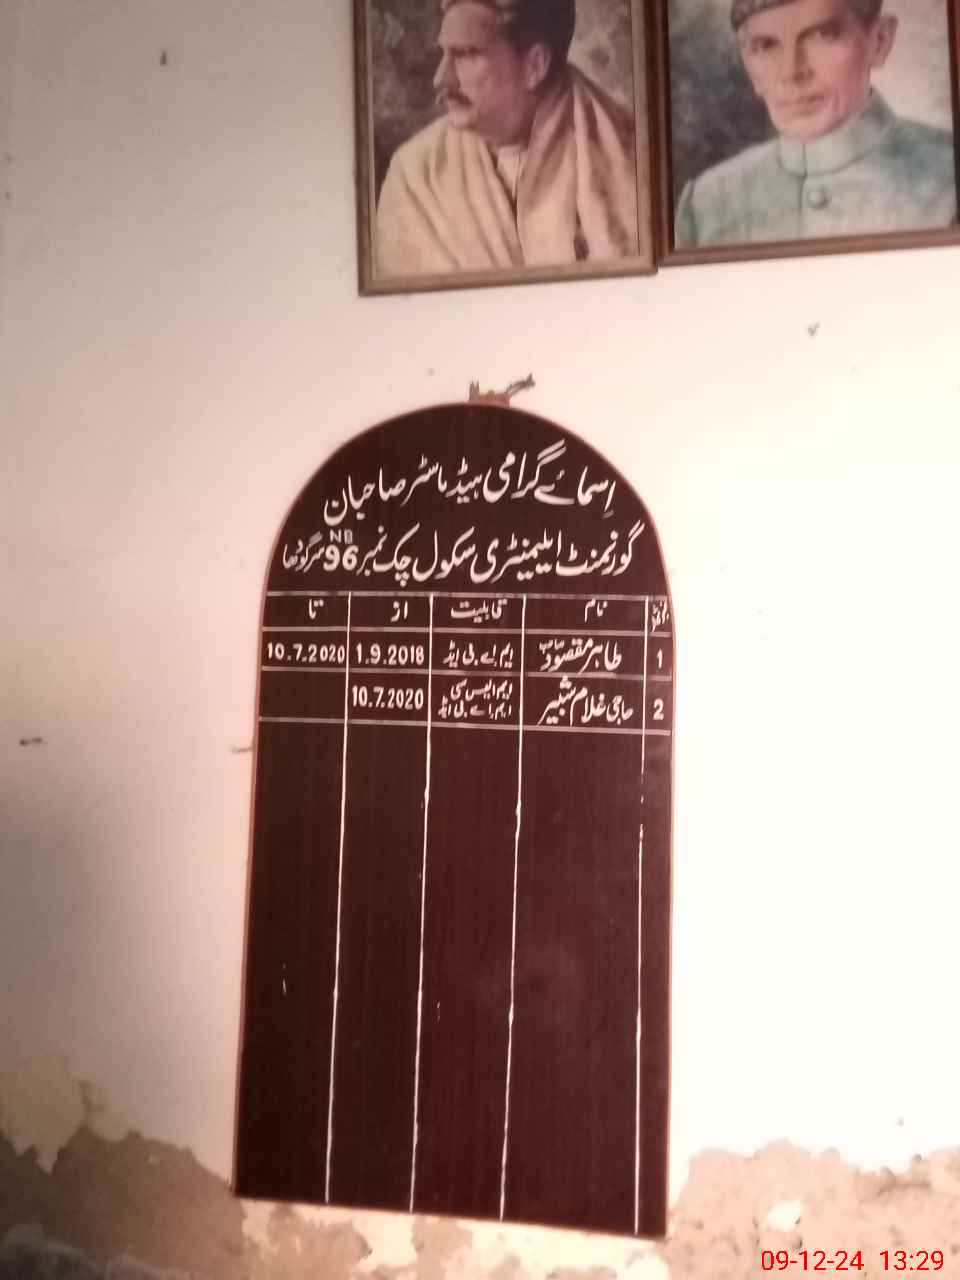 اسمائے گرامی ہیڈ ماسٹر صاحبان
گورنمنٹ ایلیمنٹری سکول چک نمبر 96 NB سرگودھا
نام قابلیت از تا
1 طاہر مقصود صاحب ایم اے بی ایڈ 1.9.2018 10.7.2020
2 حاجی غلام شبیر ایم ایس سی ایم اے بی ایڈ 10.7.2020
09-12-24 13:29